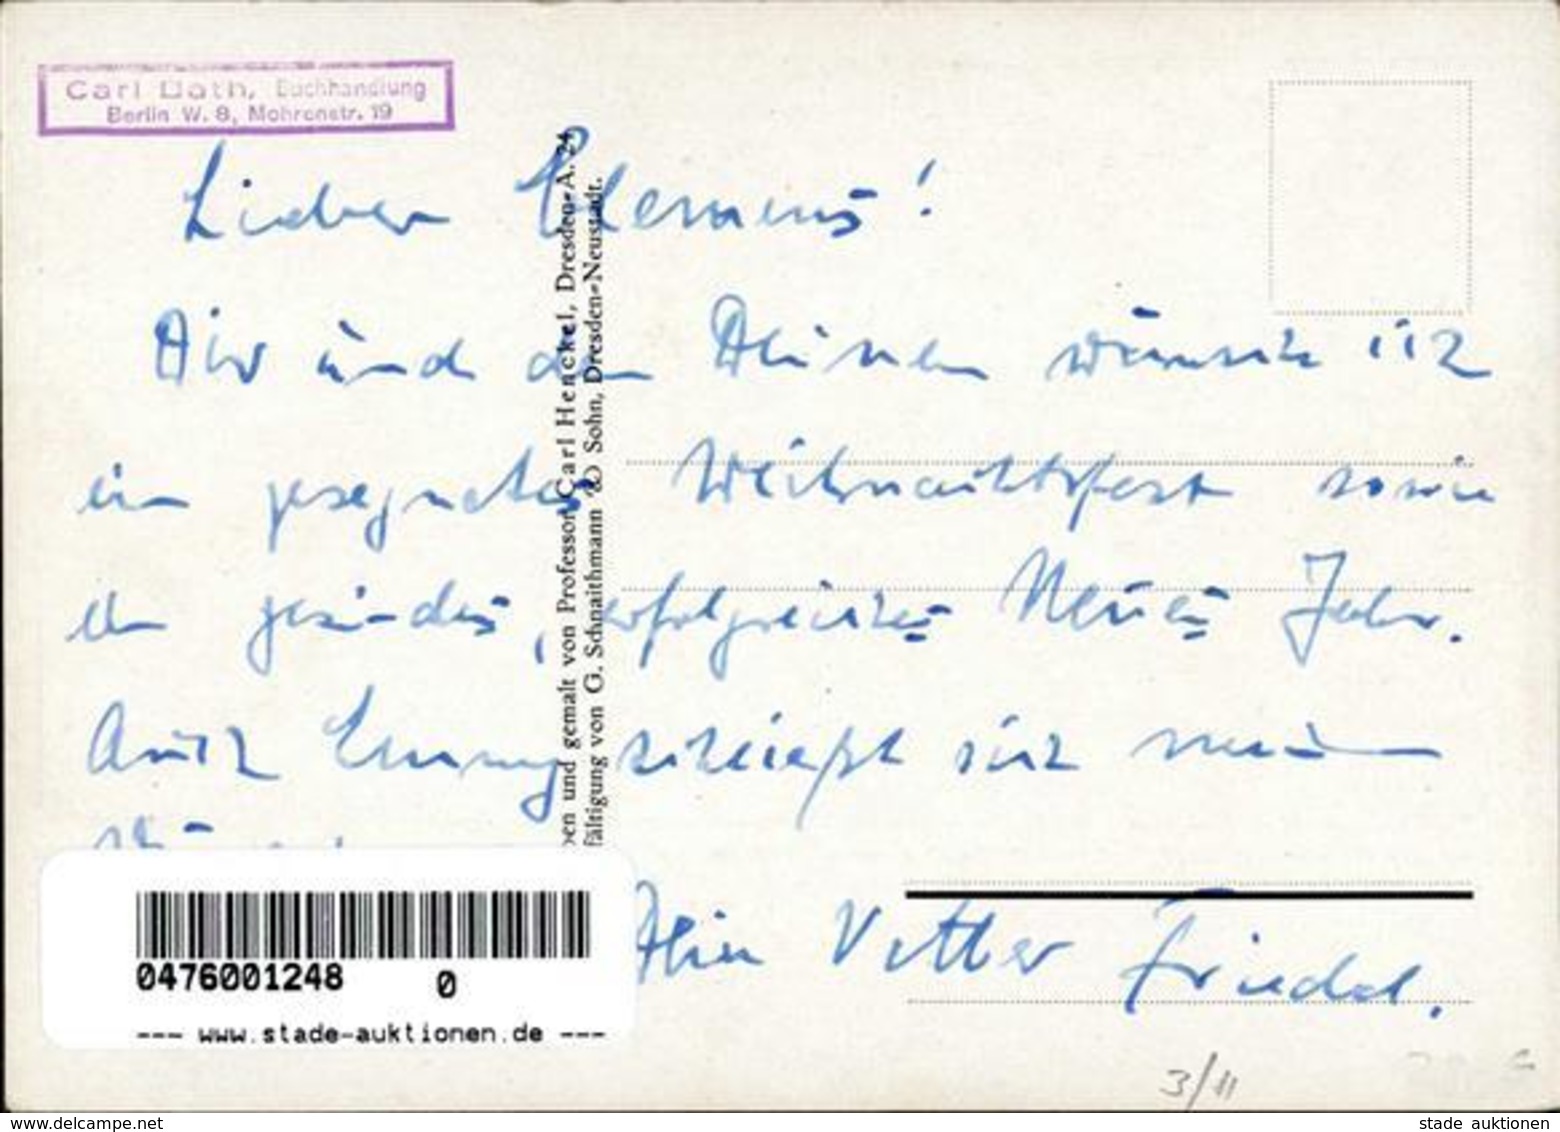 Carl Dath, Buchhandlung
Berlin W. 8, Mohrenstr. 19
Lieber Clemens!
Dir und den Deinen wünsche ich
ein gesegnetes Weihnachtsfest sowie
ein gesundes, erfolgreiches Neues Jahr.
Auch schließt sich meinen
Dein Vetter Friedel.
ben und gemalt von Professor Carl Henckel, Dresden-A. 24
fältigung von G. Schnaithmann & Sohn, Dresden-Neustadt.
0476001248 0
--- www.stade-auktionen.de ---
3/11
www.delcampe.net
stade auktionen